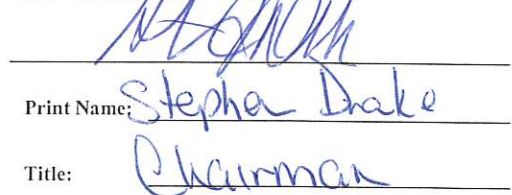 Print Name: Stephen Drake
Title: Chairman